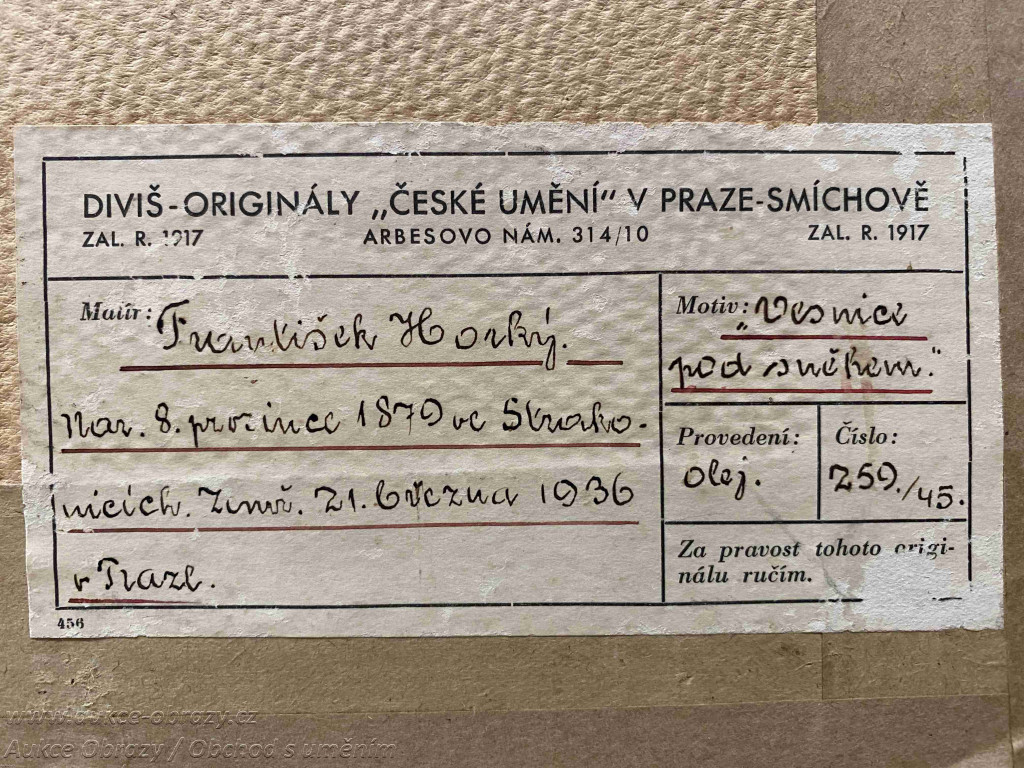 DIVIŠ-ORIGINÁLY „ČESKÉ UMĚNÍ" V PRAZE-SMÍCHOVĚ
ZAL. R. 1917 ARBESOVO NÁM. 314/10 ZAL. R. 1917
Malíř: František Horký.
nar. 8. prosince 1879 ve Strako-
nicích. Zemř. 21. března 1936
v Praze.
Motiv: „Vesnice
pod sněhem."
Provedení: Číslo:
olej. 259./45.
Za pravost tohoto origi-
nálu ručím.
456
www.aukce-obrazy.cz
Aukce Obrazy / Obchod s uměním